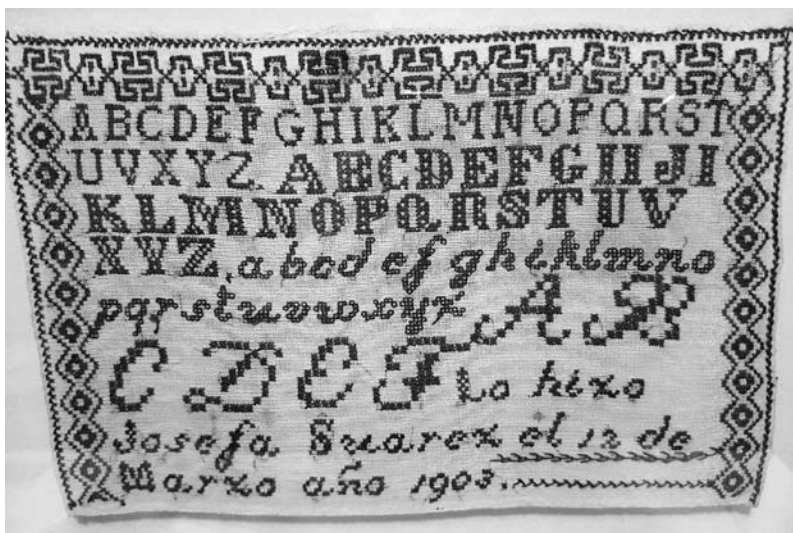 ABCDEFGHIKLMNOPQRST
UVXYZ. ABCDEFGHJI
KLMNOPQRSTUV
XYZ, abcdefghiklmno
pqrstuvwxyz A B
C D E F Lo hizo
Josefa Suarez el 12 de
Marzo año 1903.